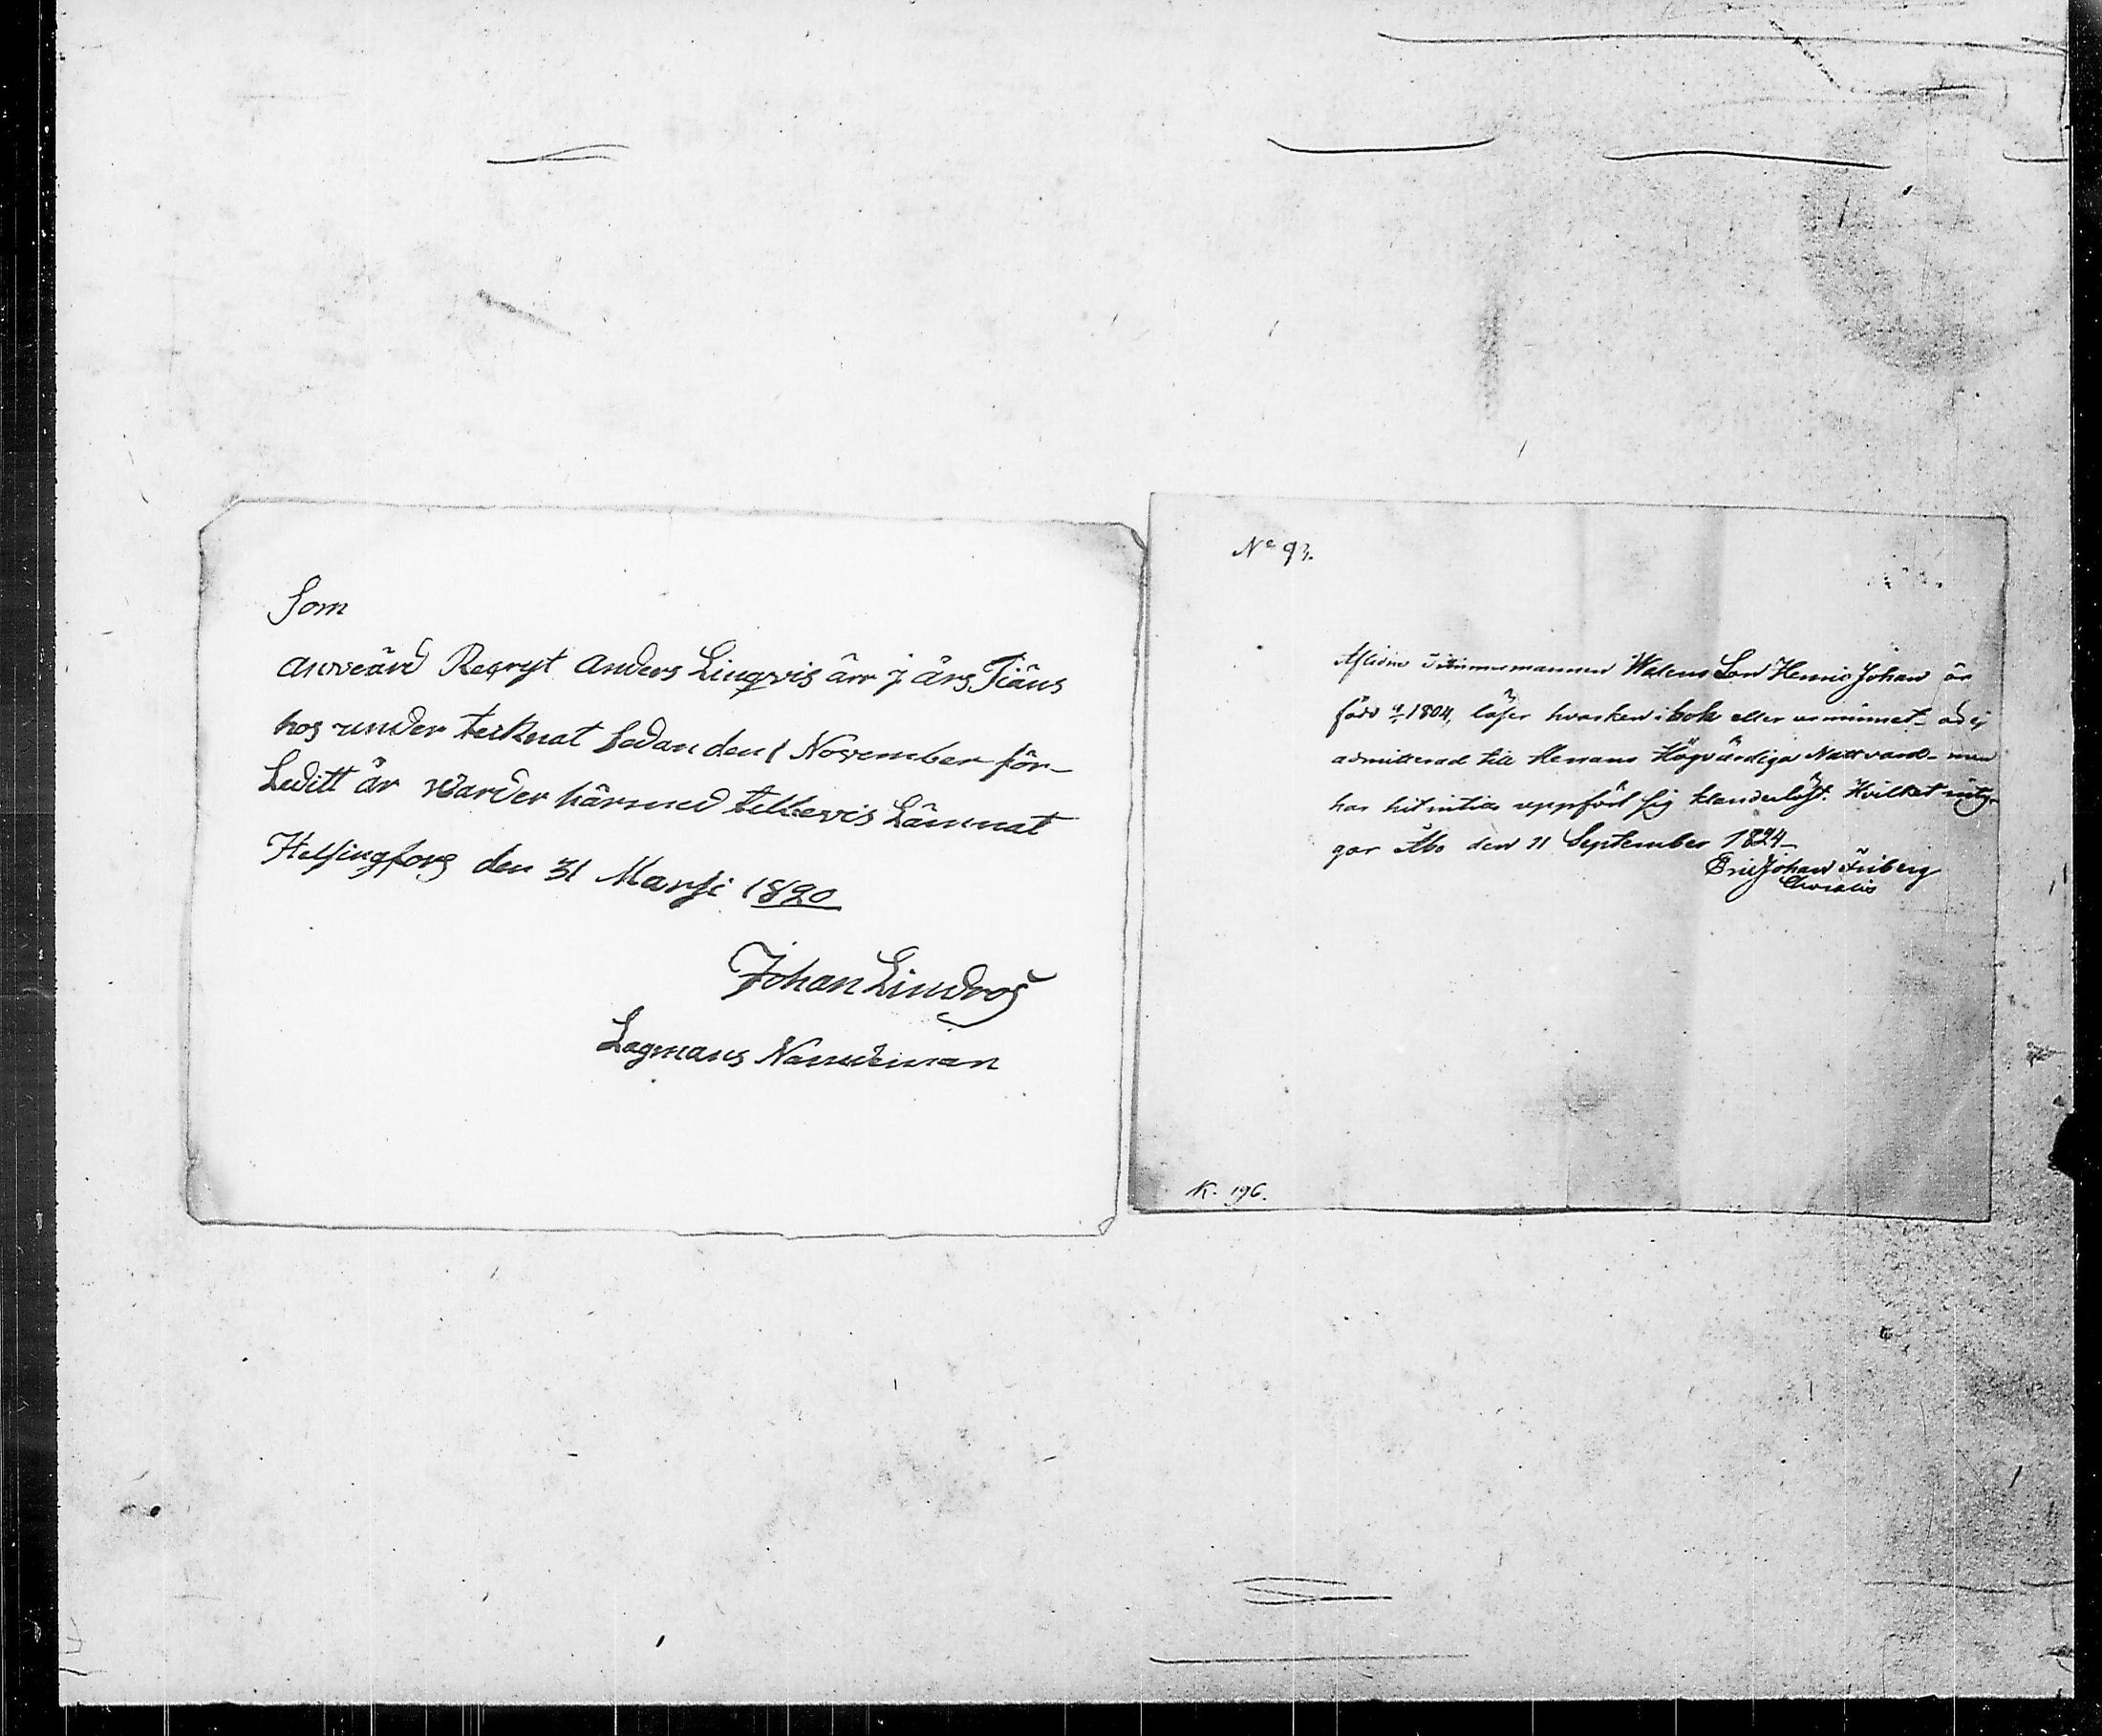 Som
anveärd Recryt Anders Linqvis ärr j års Tiäns
hos under teiknat sedan den 1 November för-
Leditt år warder härmed tell bevis Lämnat
Helsingfors den 31 Marsi 1820
Johan Lindros
Lagmans Namdeman
No 93.
Aflidne Timmermannen Walens Son Henric Johan är
född 1804, läser hvarken i bok eller ur minnet - och ej
admitterad till Herrans Högvärdiga Nattvard - men
har hitintils uppfört sig klanderlöst. Hvilket inty-
gar Åbo den 11 September 1824_
Eric Johan Friberg
K. 196.